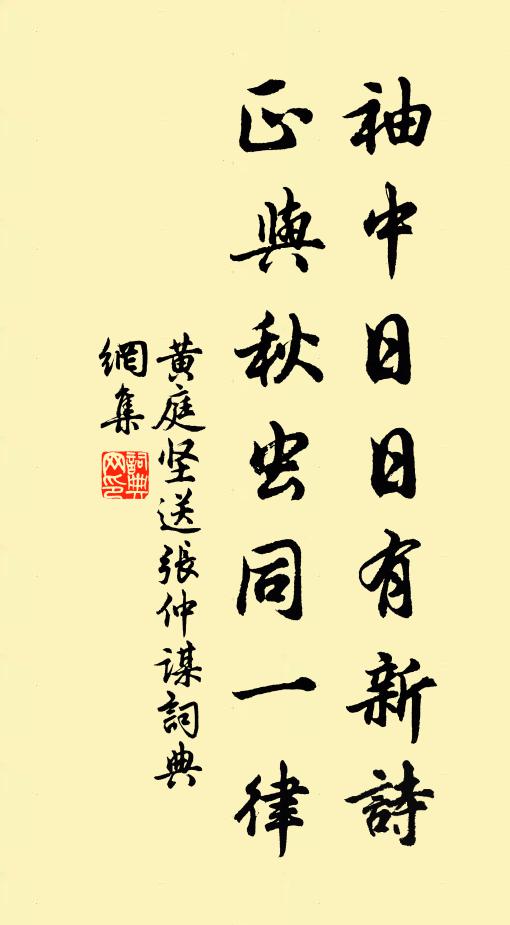 袖中日日有新詩
正與秋虫同一律
黄庭坚送張仲謀詞典
網集
詞典
网印